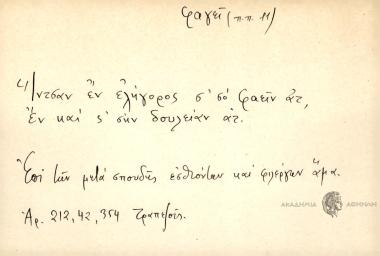 φαγεῖ (π.π. 11)
Ἄντσαν ἒν ἐλήγορος σ' σὸ φαεῖν ἀτ,
ἒν καὶ ς' σὴν δουλείαν ἀτ.
Ἐπὶ τῶν μετὰ σπουδῆς ἐσθιόντων καὶ φιλέργων ἅμα.
Ἀρ. 212, 42, 354 Τραπεζοῦς.
ΑΚΑΔΗΜΙΑ ΑΘΗΝΩΝ